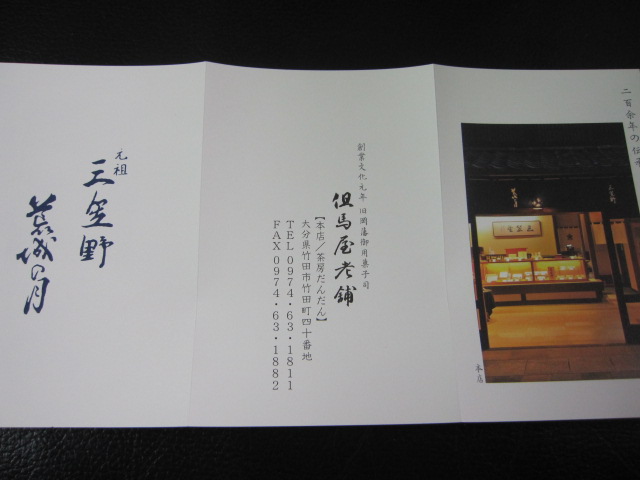 二百余年の伝
本店
創業文化元年 旧岡藩御用菓子司
但馬屋老舗
【本店/茶房だんだん】
大分県竹田市竹田町四十番地
TEL 0974・63・1811
FAX 0974・63・1882
元祖
三笠野
荒城の月